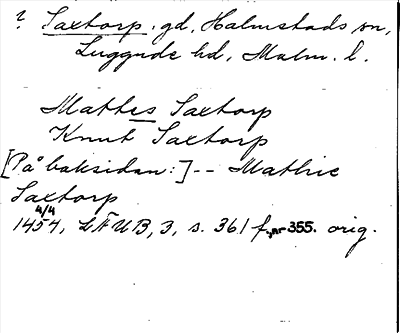 ? Saxtorp. gd, Halmstads sn,
Luggude hd, Malm. l.
Mathes Saxtorp
Knut Saxtorp
[På baksidan:] -- Mathie
Saxtorp
4/4
1454, LÄUB, 3, s. 361 f., nr 355. orig.